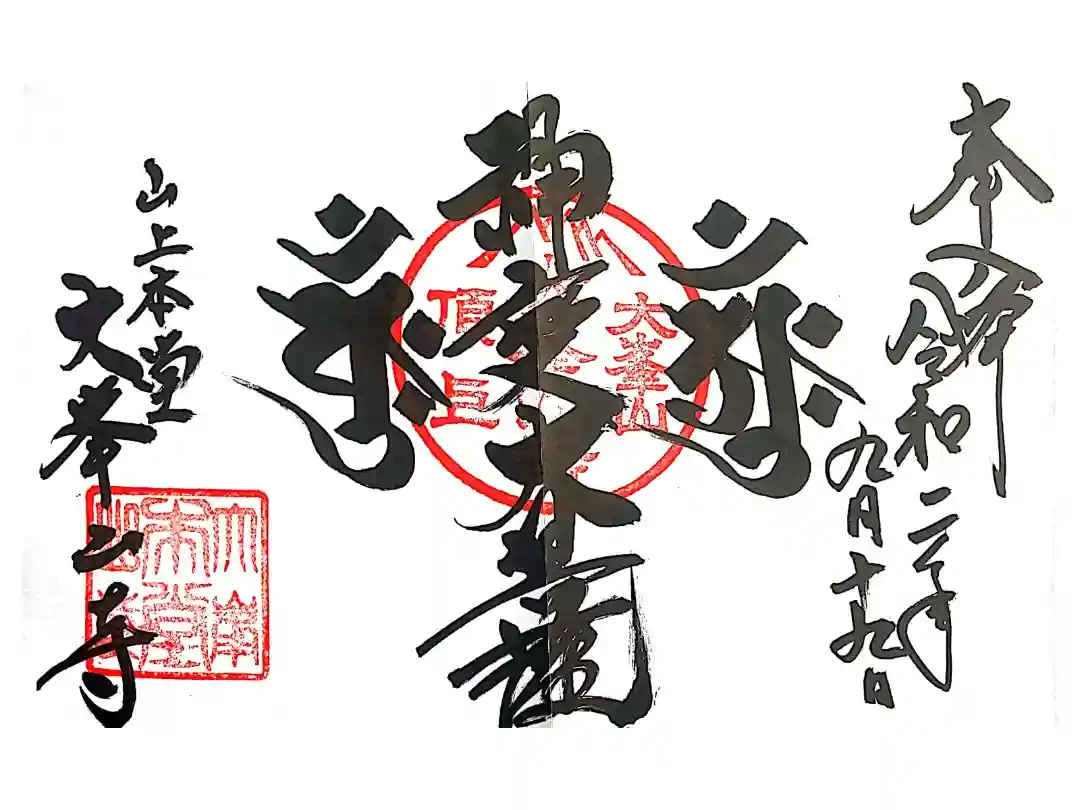 奉拝
令和二年
九月十九日
神変大菩薩
大峯山
頂上
山上本堂
大峯山寺
本堂